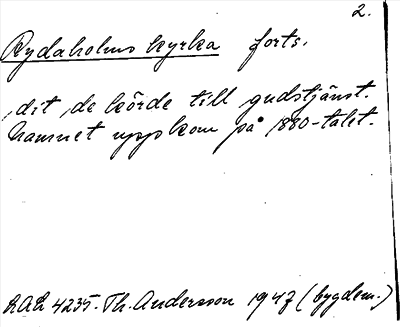 2.
Rydaholms kyrka forts.
dit de körde till gudstjänst.
Namnet uppkom på 1880-talet.
4235. Th. Andersson 1947 (bygdem.)